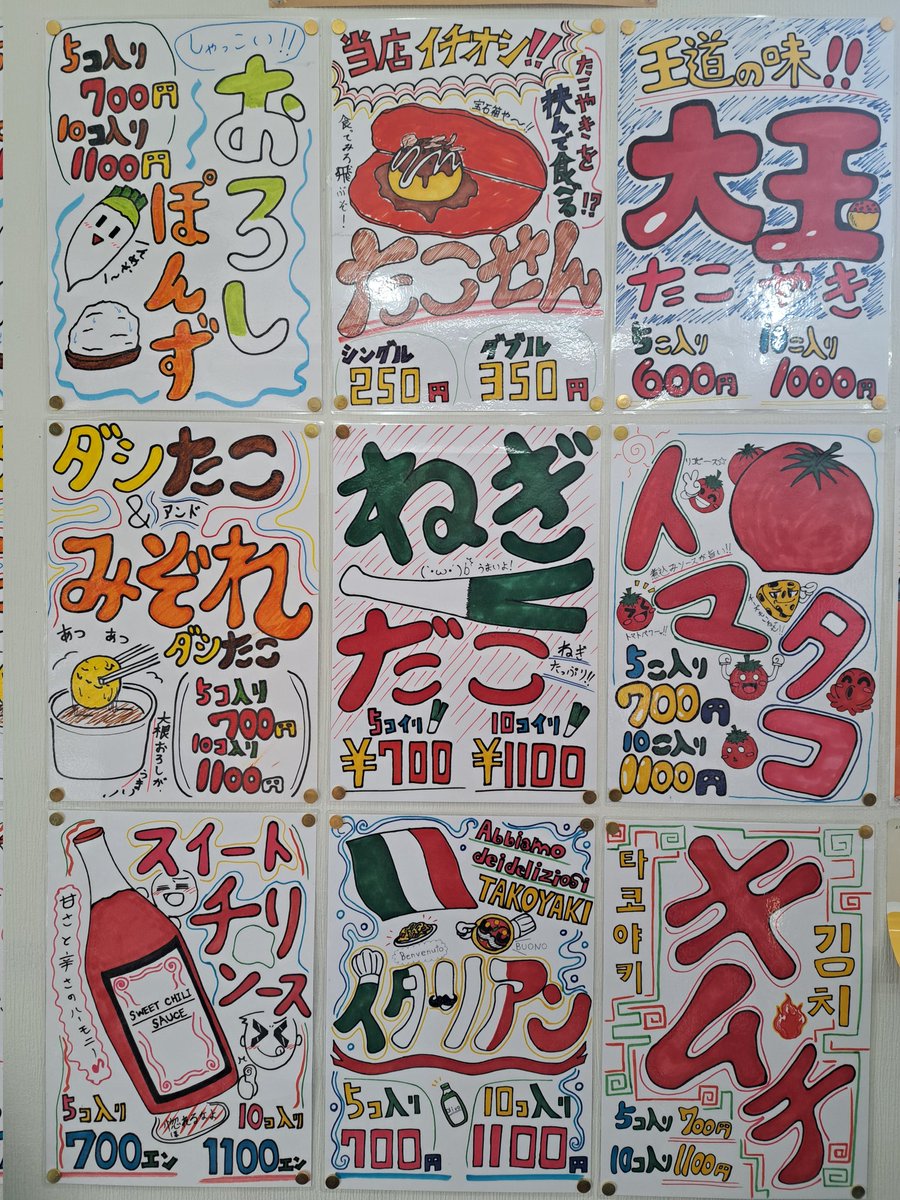 しゃっこい!!
おろし
ぽんず
5コ入り
700円
10コ入り
1100円
当店イチオシ!!
たこやきを
挟んで食べる
!?
宝石箱や〜!!
食ってみろ飛ぶぞー!
たこせん
シングル
250円
ダブル
350円
王道の味!!
大玉
たこやき
5こ入り
600円
10こ入り
1000円
ダシたこ
& アンド
みぞれ
ダシたこ
あつ あつ
大根おろしが
5コ入り
700円
10コ入り
1100円
ねぎ
(´・ω・)b うまいよ!
だこ
ねぎ
たっぷり!!
5コイリ
¥700
10コイリ
¥1100
トマタコ
リコピーン☆
煮込みソースが旨い!!
トマトパワー!!
5こ入り
700円
10こ入り
1100円
スイート
チリ
ソース
甘さと辛さのハーモニー♪
SWEET CHILI
SAUCE
5コ入り
700エン
10コ入り
1100エン
Abbiamo
dei deliziosi
TAKOYAKI
Benvenuto
BUONO
イタリアン
5コ入り
700円
10コ入り
1100円
타코야키
キムチ
김치
5コ入り 700円
10コ入り 1100円